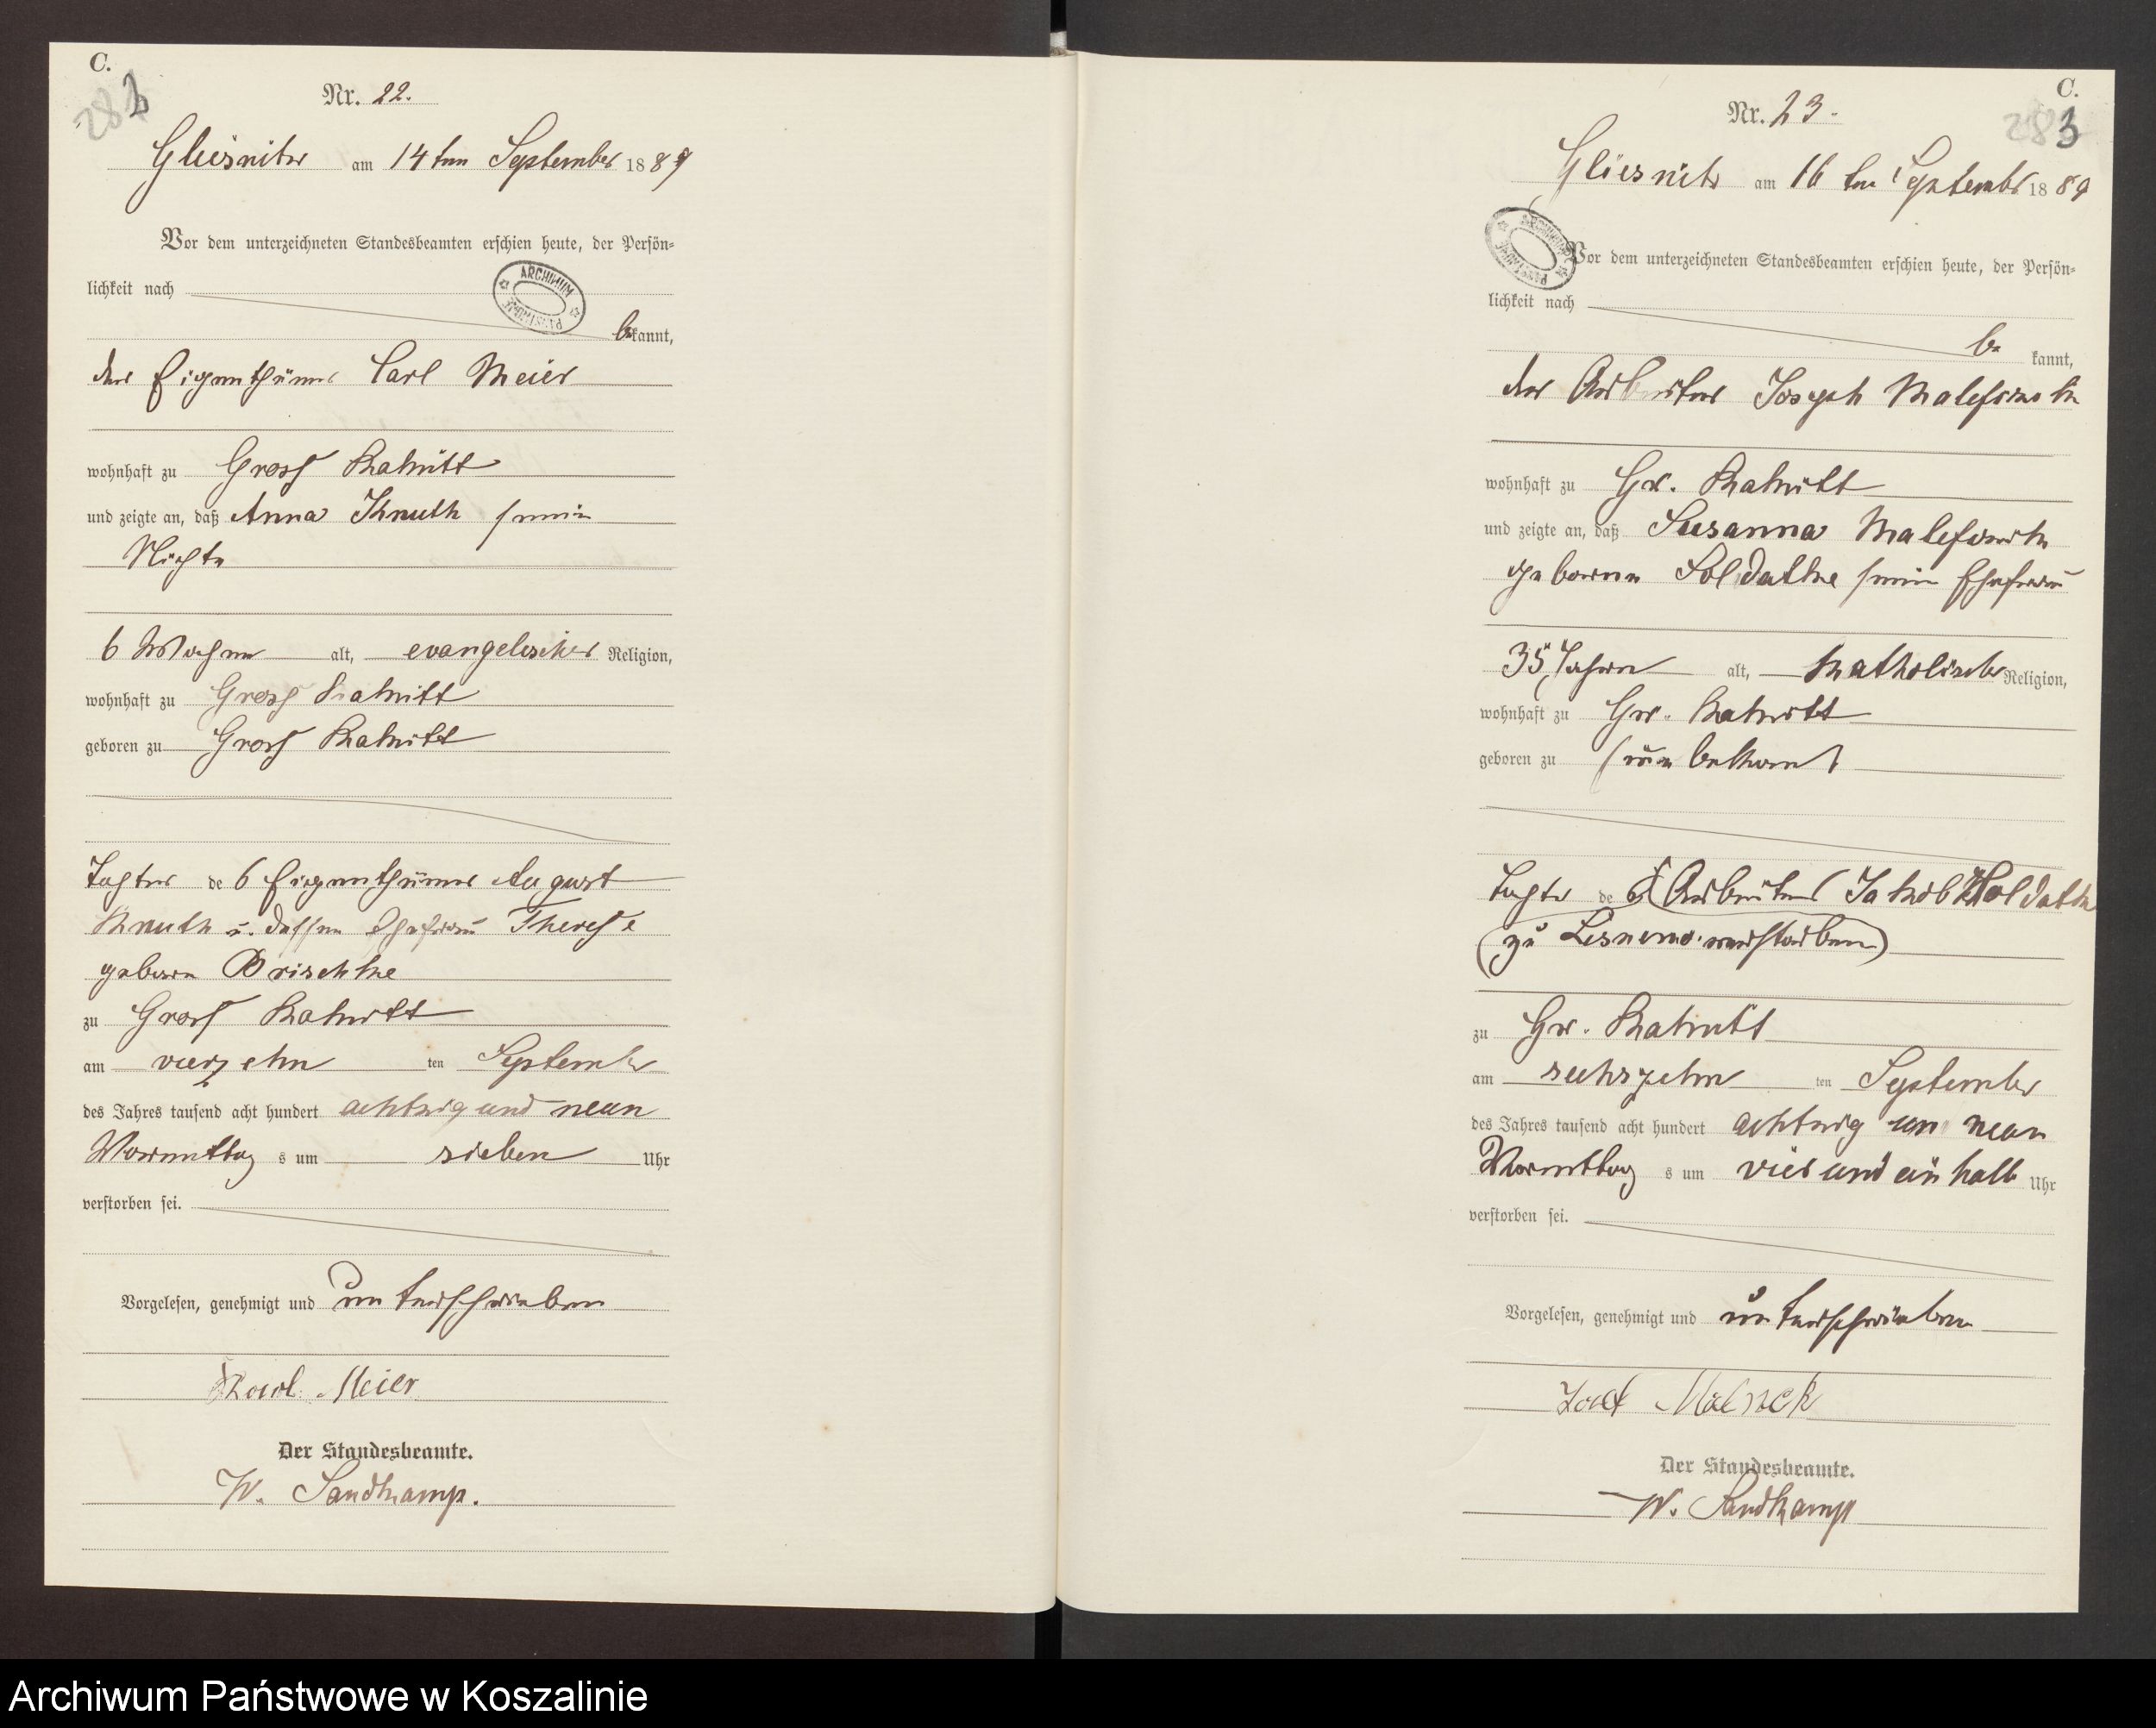 C.
282
Nr. 22.
Gliesnitz am 14ten September 1889
Vor dem unterzeichneten Standesbeamten erschien heute, der Persön-
lichkeit nach
ARCHIWUM PAŃSTWOWE
bekannt,
der Eigenthümer Carl Meier
wohnhaft zu Gross Rakitt
und zeigte an, daß Anna Knuth seine
Nichte
6 Wochen alt, evangelischer Religion,
wohnhaft zu Gross Rakitt
geboren zu Gross Rakitt
Tochter des Eigenthümers August
Knuth u. dessen Ehefrau Therese
geboren Brischke
zu Gross Rakitt
am vierzehn ten September
des Jahres tausend acht hundert achtzig und neun
Vormittag s um sieben Uhr
verstorben sei.
Vorgelesen, genehmigt und unterschrieben
Karl Meier
Der Standesbeamte.
W. Sandkamp.
C.
283
Nr. 23.
Gliesnitz am 16ten September 1889
ARCHIWUM PAŃSTWOWE
Vor dem unterzeichneten Standesbeamten erschien heute, der Persön-
lichkeit nach
be kannt,
der Arbeiter Joseph
wohnhaft zu Gr. Rakitt
und zeigte an, daß Susanna
geborene Soldatke seine Ehefrau
35 Jahre alt, katholischer Religion,
wohnhaft zu Gr. Rakitt
geboren zu unbekannt
Tochter des Arbeiters Jakob Soldatke
(zu verstorben)
zu Gr. Rakitt
am sechszehn ten September
des Jahres tausend acht hundert achtzig un neun
Vormittag s um vier und ein halb Uhr
verstorben sei.
Vorgelesen, genehmigt und unterschrieben
Der Standesbeamte.
W. Sandkamp
Archiwum Państwowe w Koszalinie